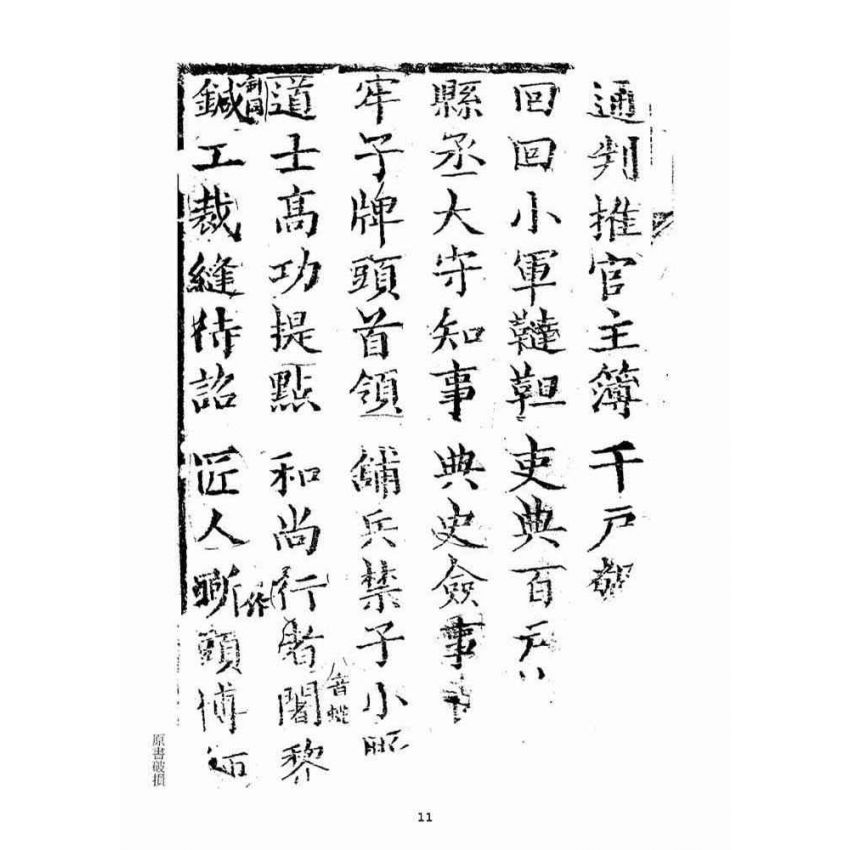 通判推官主簿千戶
回回小軍韃靼吏典百戶
縣丞大守知事典史僉事
牢子牌頭首領舖兵禁子小
道士高功提點和尚行者闍黎
音蛇
鍼工裁縫待詔匠人
頭博
原書破損
11